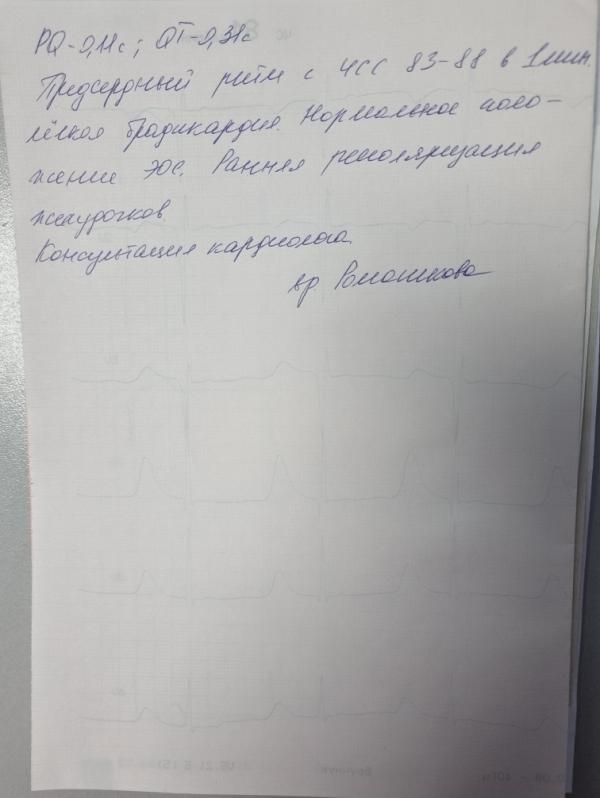 PQ-0,11с; QT-0,31с
Предсердный ритм с ЧСС 83-88 в 1 мин.
лёгкая брадикардия. Нормальное поло-
жение ЭОС. Ранняя реполяризация
желудочков
Консультация кардиолога
вр. Ромашкова